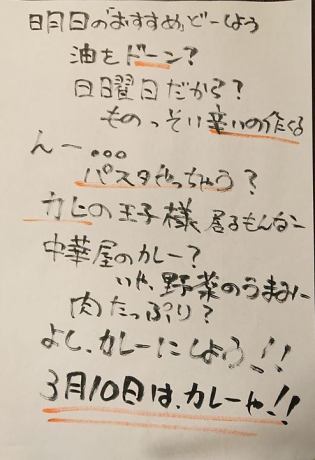 明日の「おすすめ」どーしよう
油をドーン?
日曜日だから?
ものっそい辛いの作くる
んー...
パスタやっちゃう?
カレーの王子様 居るもんなー
中華屋のカレー?
いや、野菜のうまみに
肉たっぷり?
よし、カレーにしよう!!
3月10日は、カレーや!!